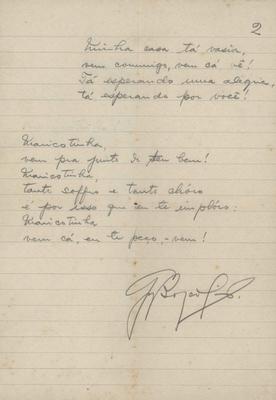 2
Minha casa tá vasia,
vem commigo, vem cá vê!
Tá esperando uma alegria,
tá esperando por você!
Maricotinha,
vem pra junto de teu bem!
Maricotinha,
tanto soffro e tanto chóro
é por isso que eu te implóro:
Maricotinha
vem cá, eu te peço, - vem!